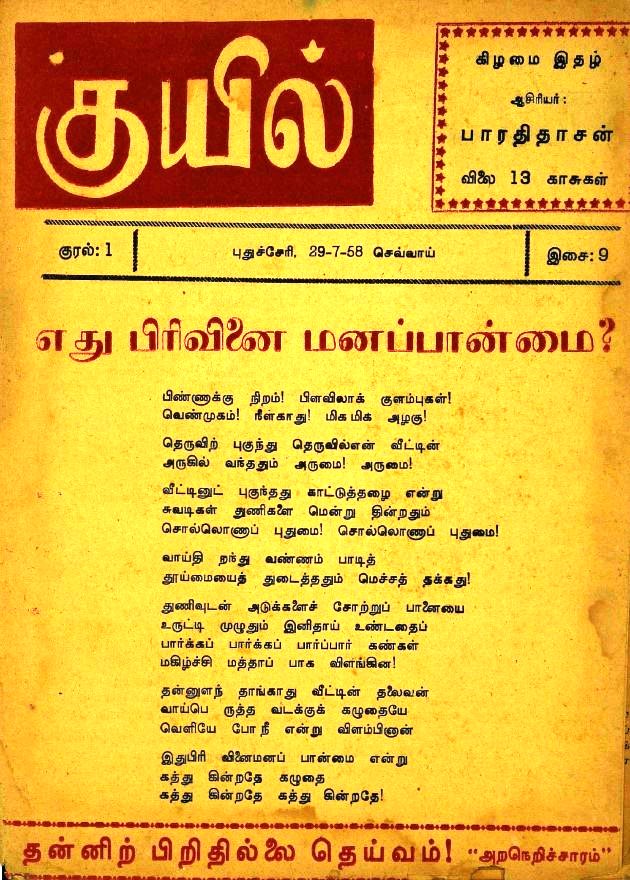 குயில்
கிழமை இதழ்
ஆசிரியர் :
பாரதிதாசன்
விலை 13 காசுகள்
குரல்: 1
புதுச்சேரி, 29-7-58 செவ்வாய்
இசை: 9
எது பிரிவினை மனப்பான்மை?
பிண்ணாக்கு நிறம்! பிளவிலாக் குளம்புகள்!
வெண்முகம்! நீள்காது! மிக மிக அழகு!
தெருவிற் புகுந்து தெருவில்என் வீட்டின்
அருகில் வந்ததும் அருமை! அருமை!
வீட்டினுட் புகுந்தது காட்டுத்தழை என்று
சுவடிகள் துணிகளை மென்று தின்றதும்
சொல்லொணாப் புதுமை! சொல்லொணாப் புதுமை!
வாய்தி றந்து வண்ணம் பாடித்
தூய்மையைத் துடைத்ததும் மெச்சத் தக்கது!
துணிவுடன் அடுக்களைச் சோற்றுப் பானையை
உருட்டி முழுதும் இனிதாய் உண்டதைப்
பார்க்கப் பார்க்கப் பார்ப்பார் கண்கள்
மகிழ்ச்சி மத்தாப் பாக விளங்கின!
தன்னுளந் தாங்காது வீட்டின் தலைவன்
வாய்பெ ருத்த வடக்குக் கழுதையே
வெளியே போ நீ என்று விளம்பினான்
இதுபிரி வினைமனப் பான்மை என்று
கத்து கின்றதே கழுதை
கத்து கின்றதே கத்து கின்றதே!
தன்னிற் பிறிதில்லை தெய்வம்! "அறநெறிச்சாரம்"